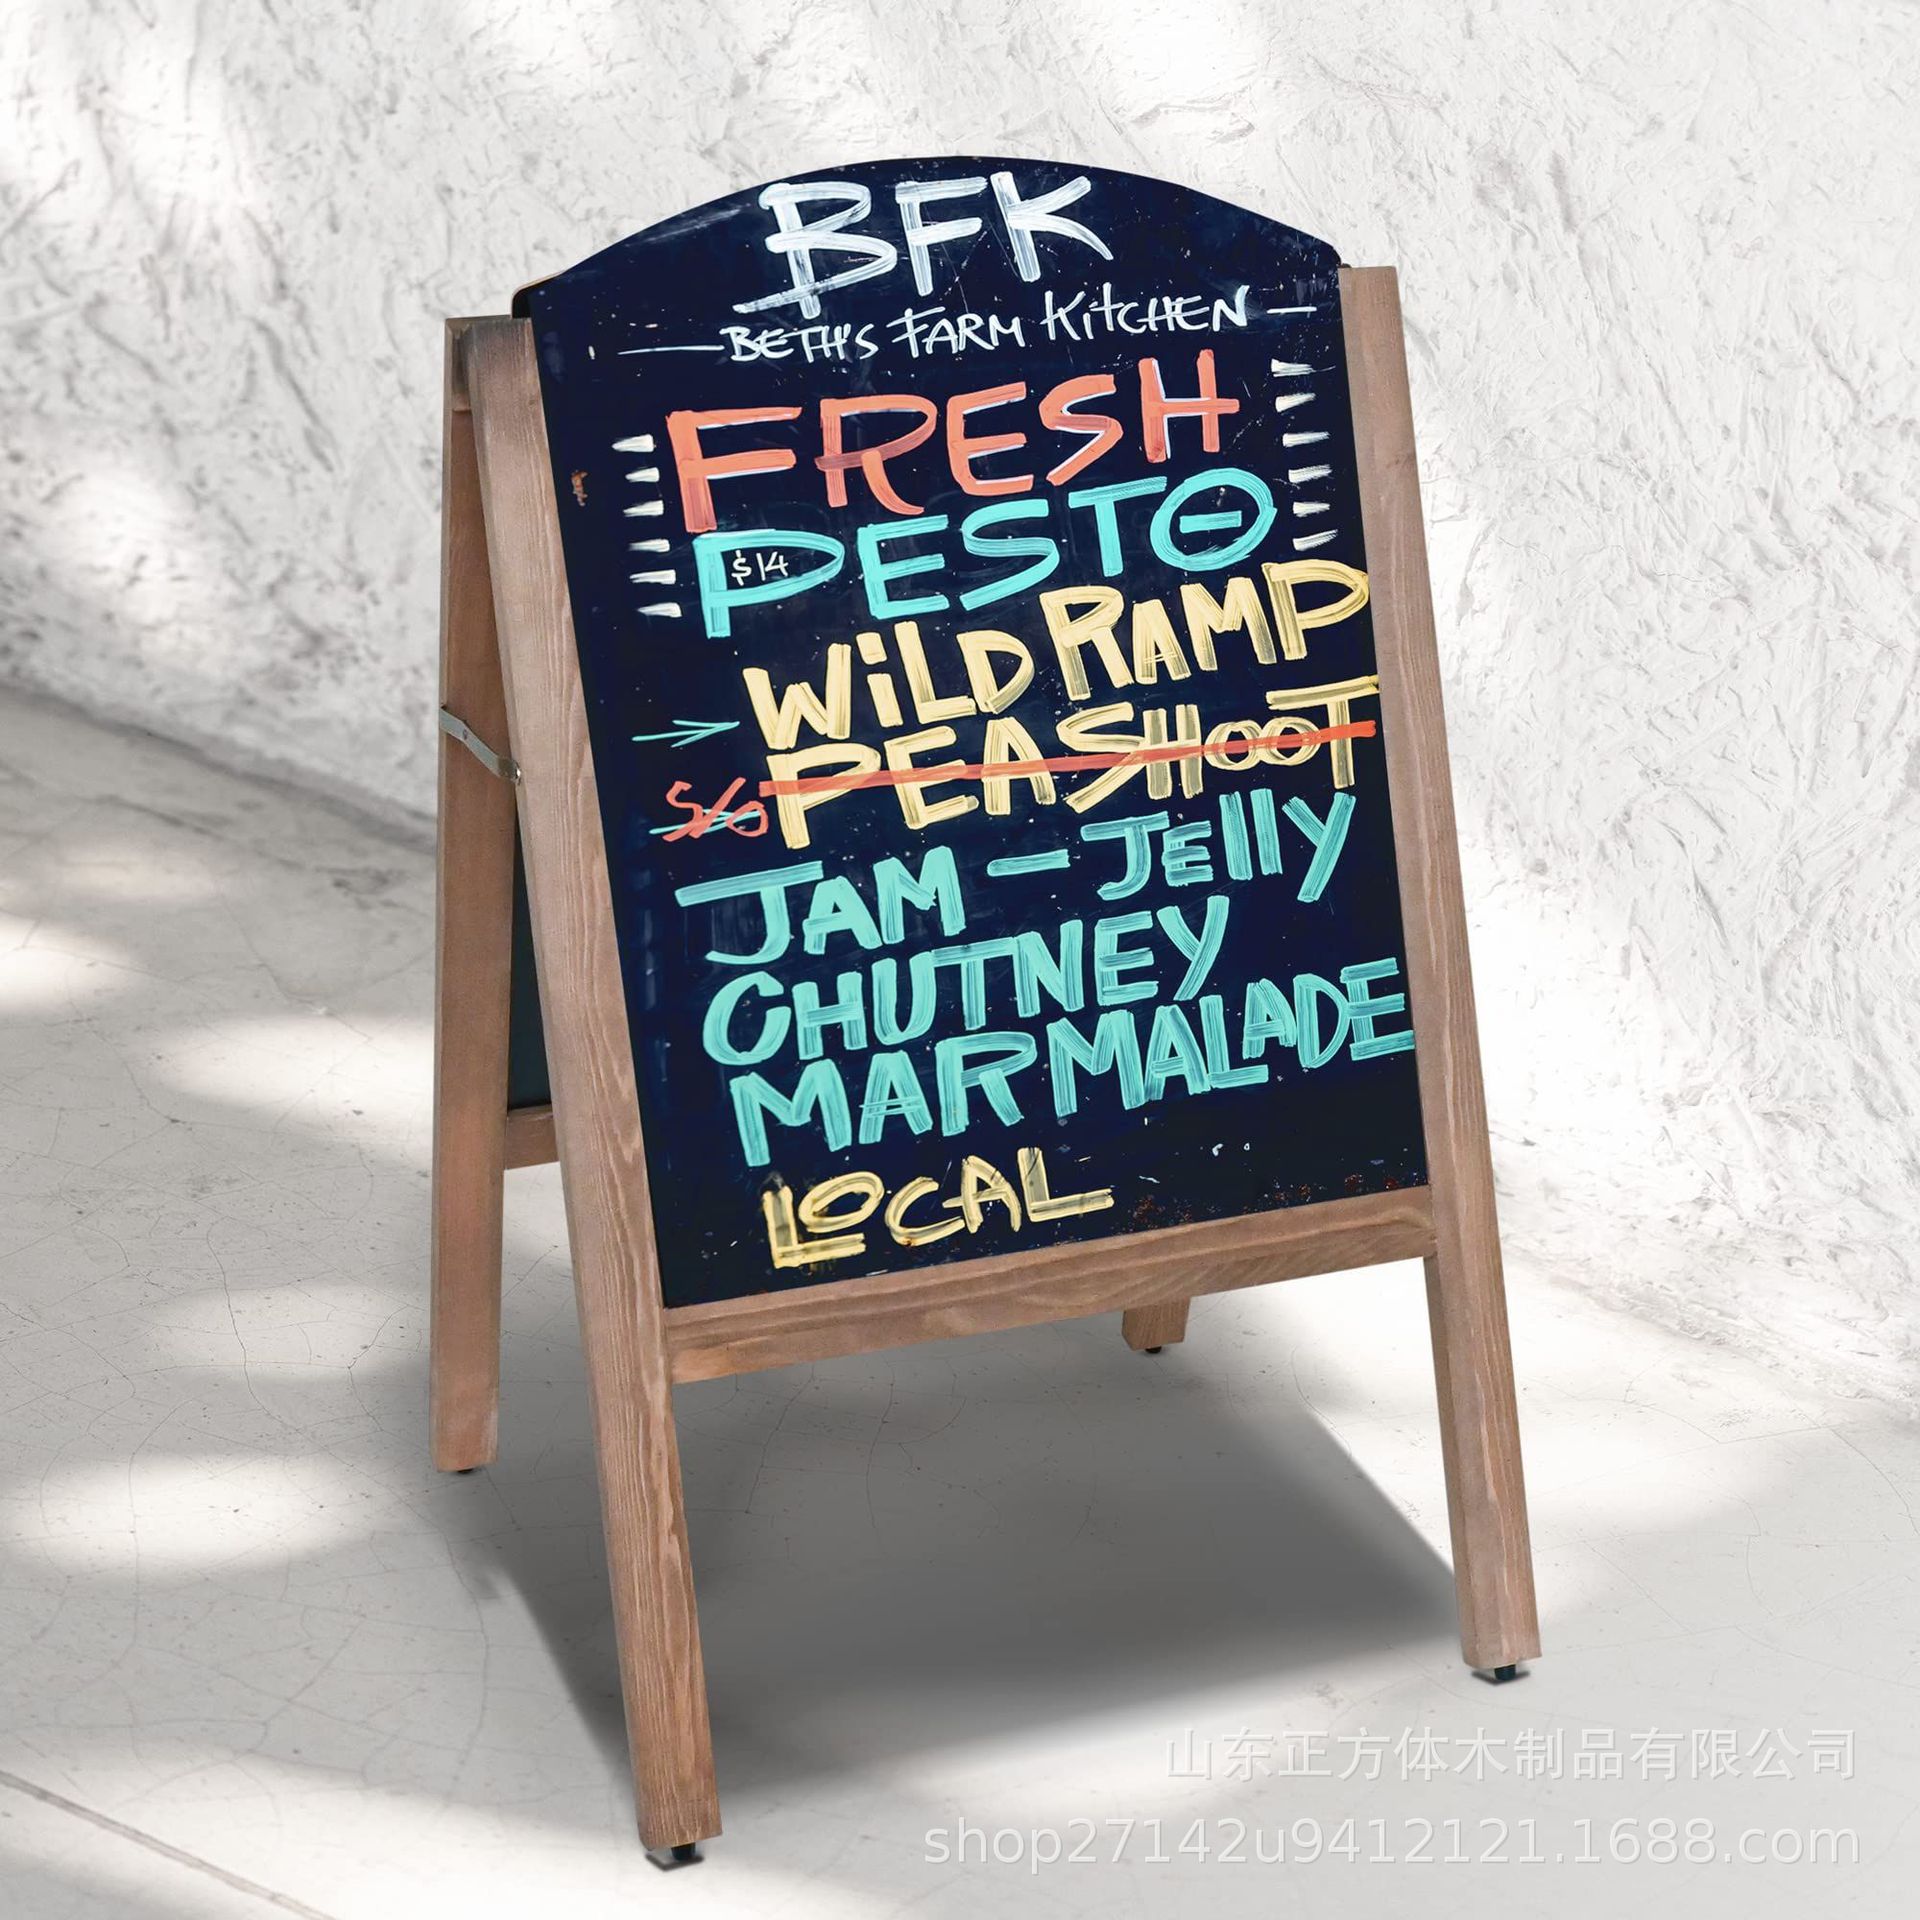 BFK
BETH'S FARM KITCHEN
FRESH
PESTO
$14
WiLD RAMP
PEA SHOOT
S/O
JAM - JEllY
CHUTNEY
MARMALADE
LOCAL
山东正方体木制品有限公司
shop27142u9412121.1688.com